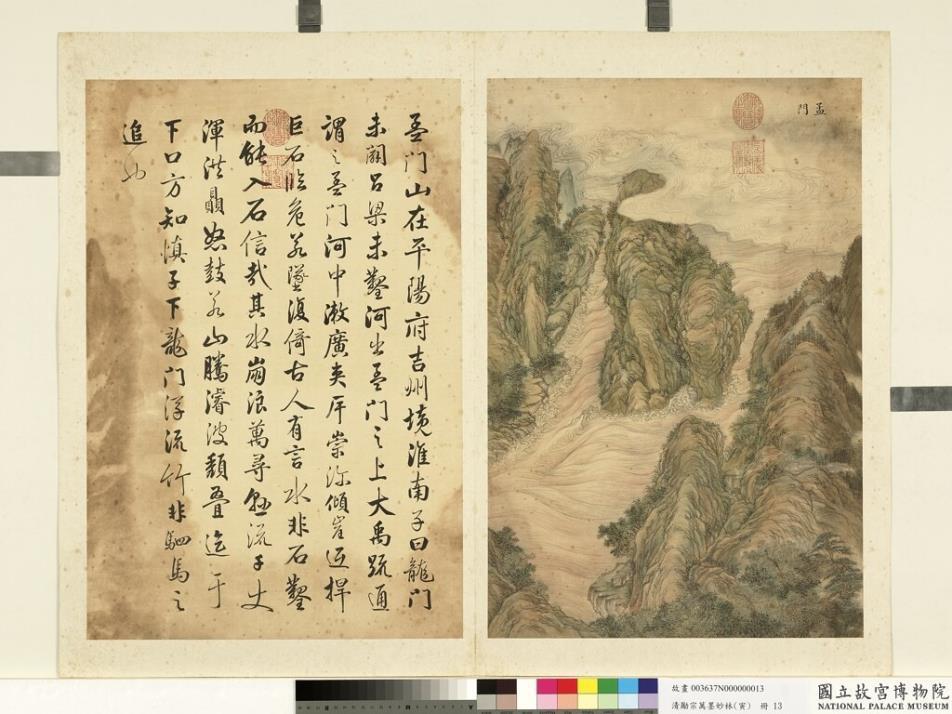 孟門
孟门山在平陽府吉州境淮南子曰龍门
未闢吕梁未鑿河出孟门之上大禹疏通
謂之孟门河中漱廣夾岸崇深傾崖返捍
巨石臨危若墜復倚古人有言水非石鑿
而能入石信哉其水崩浪萬尋懸流千丈
渾洪贔怒鼓若山騰濬波頹疊迄于
下口方知慎子下龍门浮流竹非駟馬之
追也
故畫 003637N000000013
清勵宗萬墨妙珠林(寅) 冊 13
國立故宮博物院
NATIONAL PALACE MUSEUM